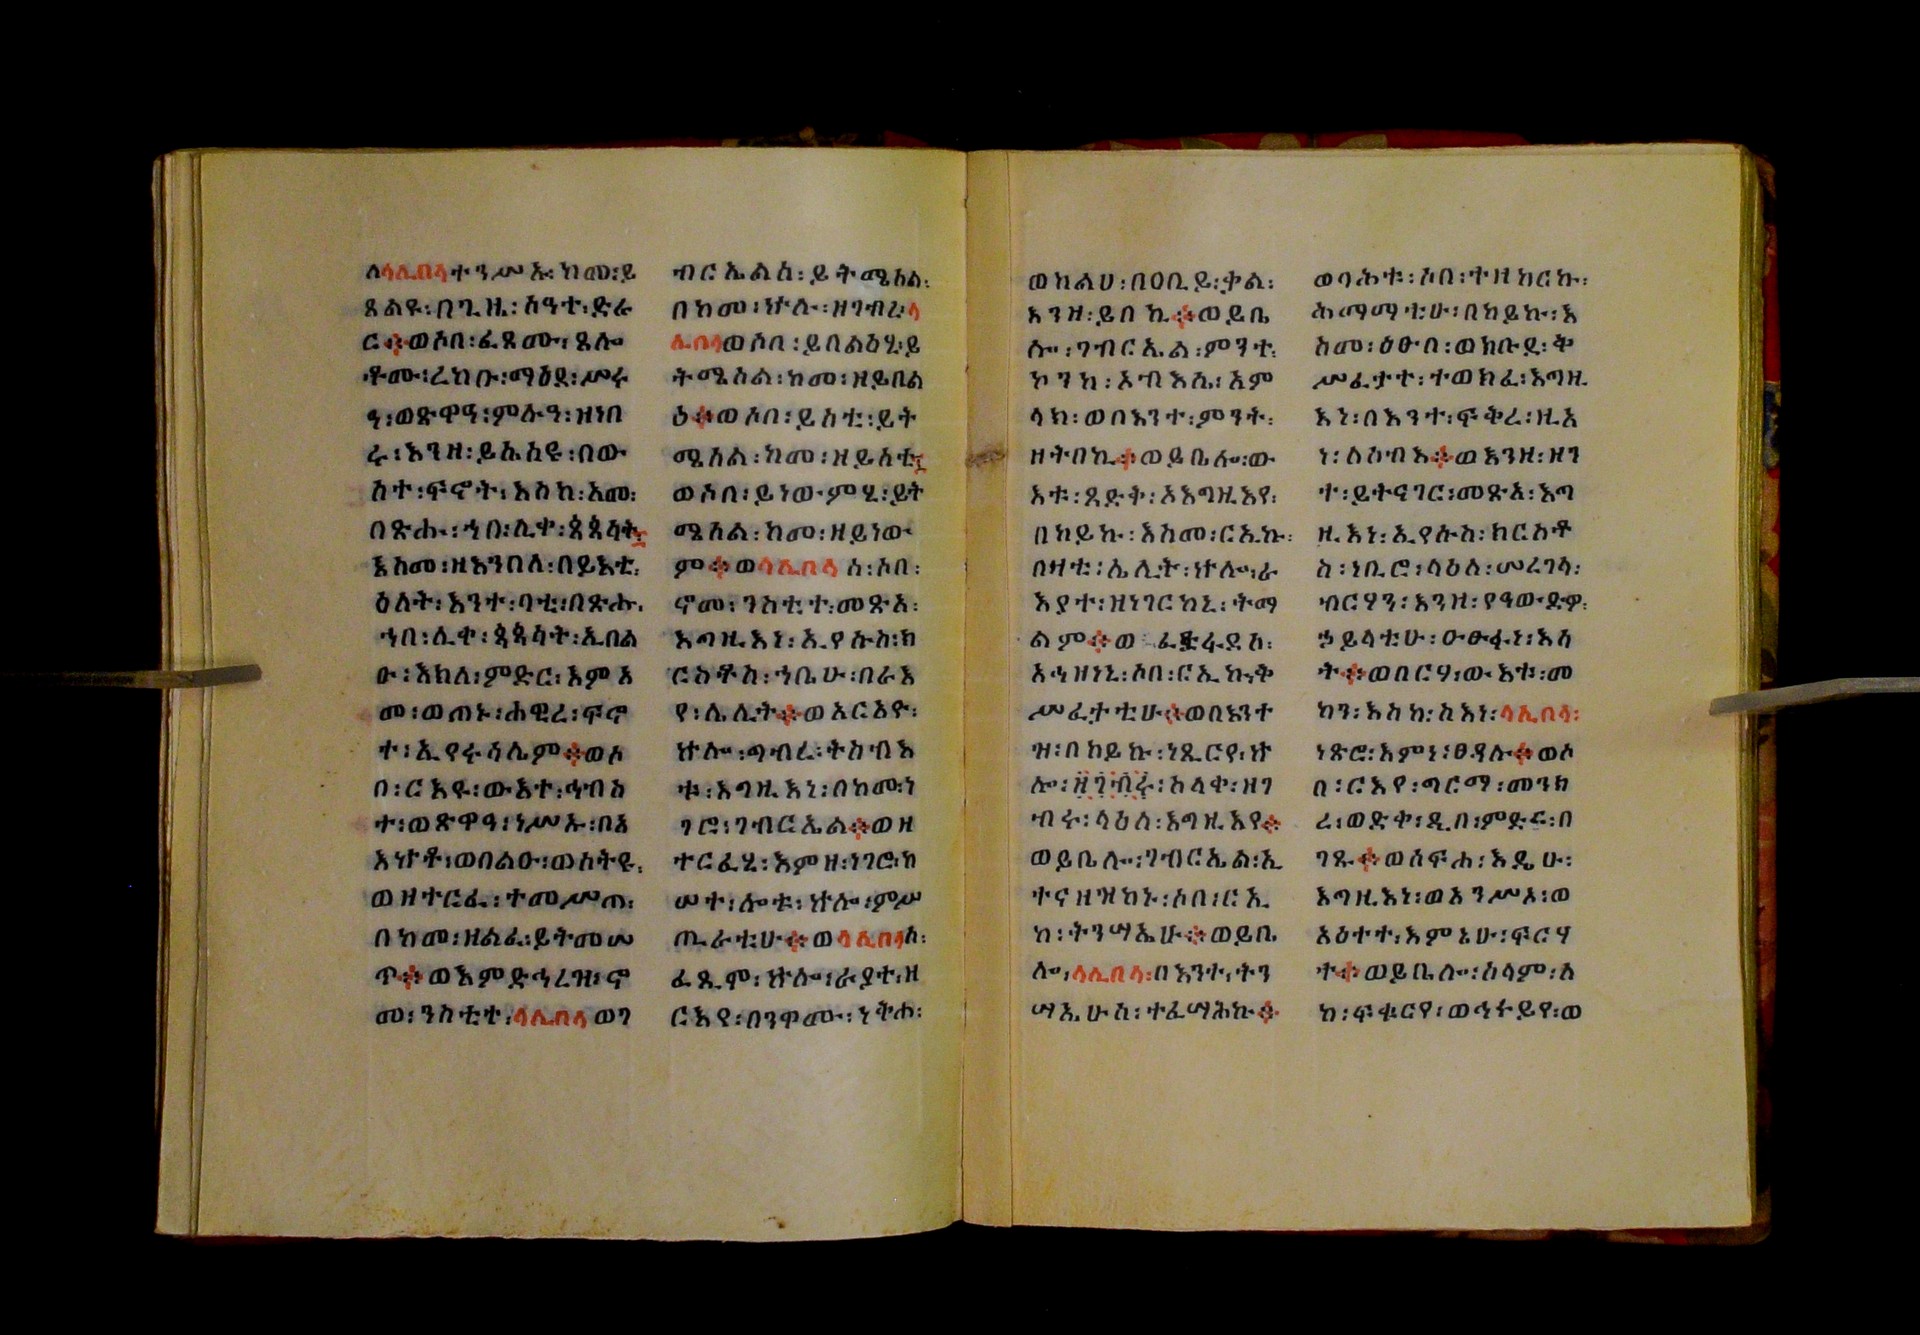 ለላሊበላተንሥኡ፡ከመ፡ይ
ጸልዩ፡በጊዜ፡ስዓተ፡ድራ
ር፨ወሶበ፡ፈጸሙ፡ጸሎ
ቶሙ፡ረከቡ፡ማዕደ፡ሥሩ
ዓ፡ወጽዋዓ፡ምሉዓ፡ዘነበ
ሩ፡እንዘ፡ይኤስዩ፡በው
ስተ፡ፍኖት፡እስከ፡አመ፡
በጽሑ፡ኀበ፡ሊቀ፡ጳጳሳት፡
እስመ፡ዘእንበለ፡በይእቲ፡
ዕለት፡እንተ፡ባቲ፡በጽሑ፡
ኀበ፡ሊቀ፡ጳጳሳት፡ኢበል
ዑ፡እክለ፡ምድር፡እምአ
መ፡ወጠኑ፡ሐዊረ፡ፍኖ
ተ፡ኢየሩሳሌም፨ወሶ
በ፡ርእዩ፡ውእተ፡ኅብስ
ተ፡ወጽዋዓ፡ነሥኡ፡በአ
እኵቶ፡ወበልዑ፡ወሰትዩ፡
ወዘተርፈ፡ተመሥጠ፡
በከመ፡ዘልፈ፡ይትመሠ
ጥ፨ወእምድኅረዝ፡ኖ
መ፡ንስቲተ፡ላሊበላወገ
ብርኤልሰ፡ይትሜሰል፡
በከመ፡ኵሉ፡ዘገብረ፡ላ
ሊበላወሶበ፡ይበልዕሂ፡ይ
ትሜሰል፡ከመ፡ዘይበል
ዕ፨ወሶበ፡ይሰቲ፡ይት
ሜሰል፡ከመ፡ዘይሰቲ፡
ወሶበ፡ይነውምሂ፡ይት
ሜሰል፡ከመ፡ዘይነው
ም፨ወላሊበላሰ፡ሶበ፡
ኖመ፡ንስቲተ፡መጽአ፡
እግዚእነ፡ኢየሱስ፡ክ
ርስቶስ፡ኀቤሁ፡በራእ
የ፡ሌሊት፨ወአርአዮ፡
ኵሎ፡ግብረ፡ትስብእ
ቱ፡እግዚእነ፡በከመ፡ነ
ገሮ፡ገብርኤል፨ወዘ
ተርፈሂ፡እምዘ፡ነገሮ፡ከ
ሠተ፡ሎቱ፡ኵሎ፡ምሥ
ጢራቲሁ፨ወላሊበላሰ፡
ፈጺሞ፡ኵሎ፡ራእያተ፡ዘ
ርእየ፡በንዋሙ፡ነቅሐ፡
ወከልሀ፡በዐቢይ፡ቃል፡
እንዘ፡ይበኪ፨ወይቤ
ሎ፡ገብርኤል፡ምንተ፡
ኮንከ፡ኦብእሴ፡አም
ላክ፡ወበእንተ፡ምንት፡
ዘትበኪ፨ወይቤሎ፡ው
እቱ፡ጻድቅ፡ኦእግዚእየ፡
በከይኩ፡እስመ፡ርኢኩ፡
በዛቲ፡ሌሊት፡ኵሎ፡ራ
እያተ፡ዘነገርከኒ፡ትማ
ልም፨ወፈድፋደሰ፡
አኀዘነኒ፡ሶበ፡ርኢኩ፡ቅ
ሥፈታቲሁ፨ወበእንተ
ዝ፡በከይኩ፡ነጺርየ፡ኵ
ሎ፡ዘገብሩ፡ስላቀ፡ዘገ
ብሩ፡ላዕለ፡እግዚእየ፨
ወይቤሎ፡ገብርኤል፡ኢ
ተናዘዝከኑ፡ሶበ፡ርኢ
ከ፡ትንሣኤሁ፨ወይቤ
ሎ፡ላሊበላ፡በእንተ፡ትን
ሣኤሁሰ፡ተፈሣሕኩ፨
ወባሕቱ፡ሶበ፡ተዘከርኩ፡
ሕማማቲሁ፡በከይኩ፡እ
ስመ፡ዕፁብ፡ወክቡድ፡ቅ
ሥፈታተ፡ተወክፈ፡እግዚ
እነ፡በእንተ፡ፍቅረ፡ዚአ
ነ፡ለሰብእ፨ወእንዘ፡ዘን
ተ፡ይትናገር፡መጽአ፡እግ
ዚእነ፡ኢየሱስ፡ክርስቶ
ስ፡ነቢሮ፡ላዕለ፡ሠረገላ፡
ብርሃን፡እንዘ፡የዓውድዎ፡
ኃይላቲሁ፡ዑፁፋነ፡እሳ
ት፨ወበርሃ፡ውእቱ፡መ
ካን፡እስከ፡ስእነ፡ላሊበላ፡
ነጽሮ፡እምነ፡ፀዳሉ፨ወሶ
በ፡ርእየ፡ግርማ፡መንክ
ረ፡ወድቀ፡ዲበ፡ምድር፡በ
ገጹ፨ወሰፍሐ፡እዴሁ፡
እግዚእነ፡ወአንሥኦ፡ወ
አዕተተ፡እምኔሁ፡ፍርሃ
ተ፨ወይቤሎ፡ሰላም፡ለ
ከ፡ፍቁርየ፡ወኅሩይየ፡ወ